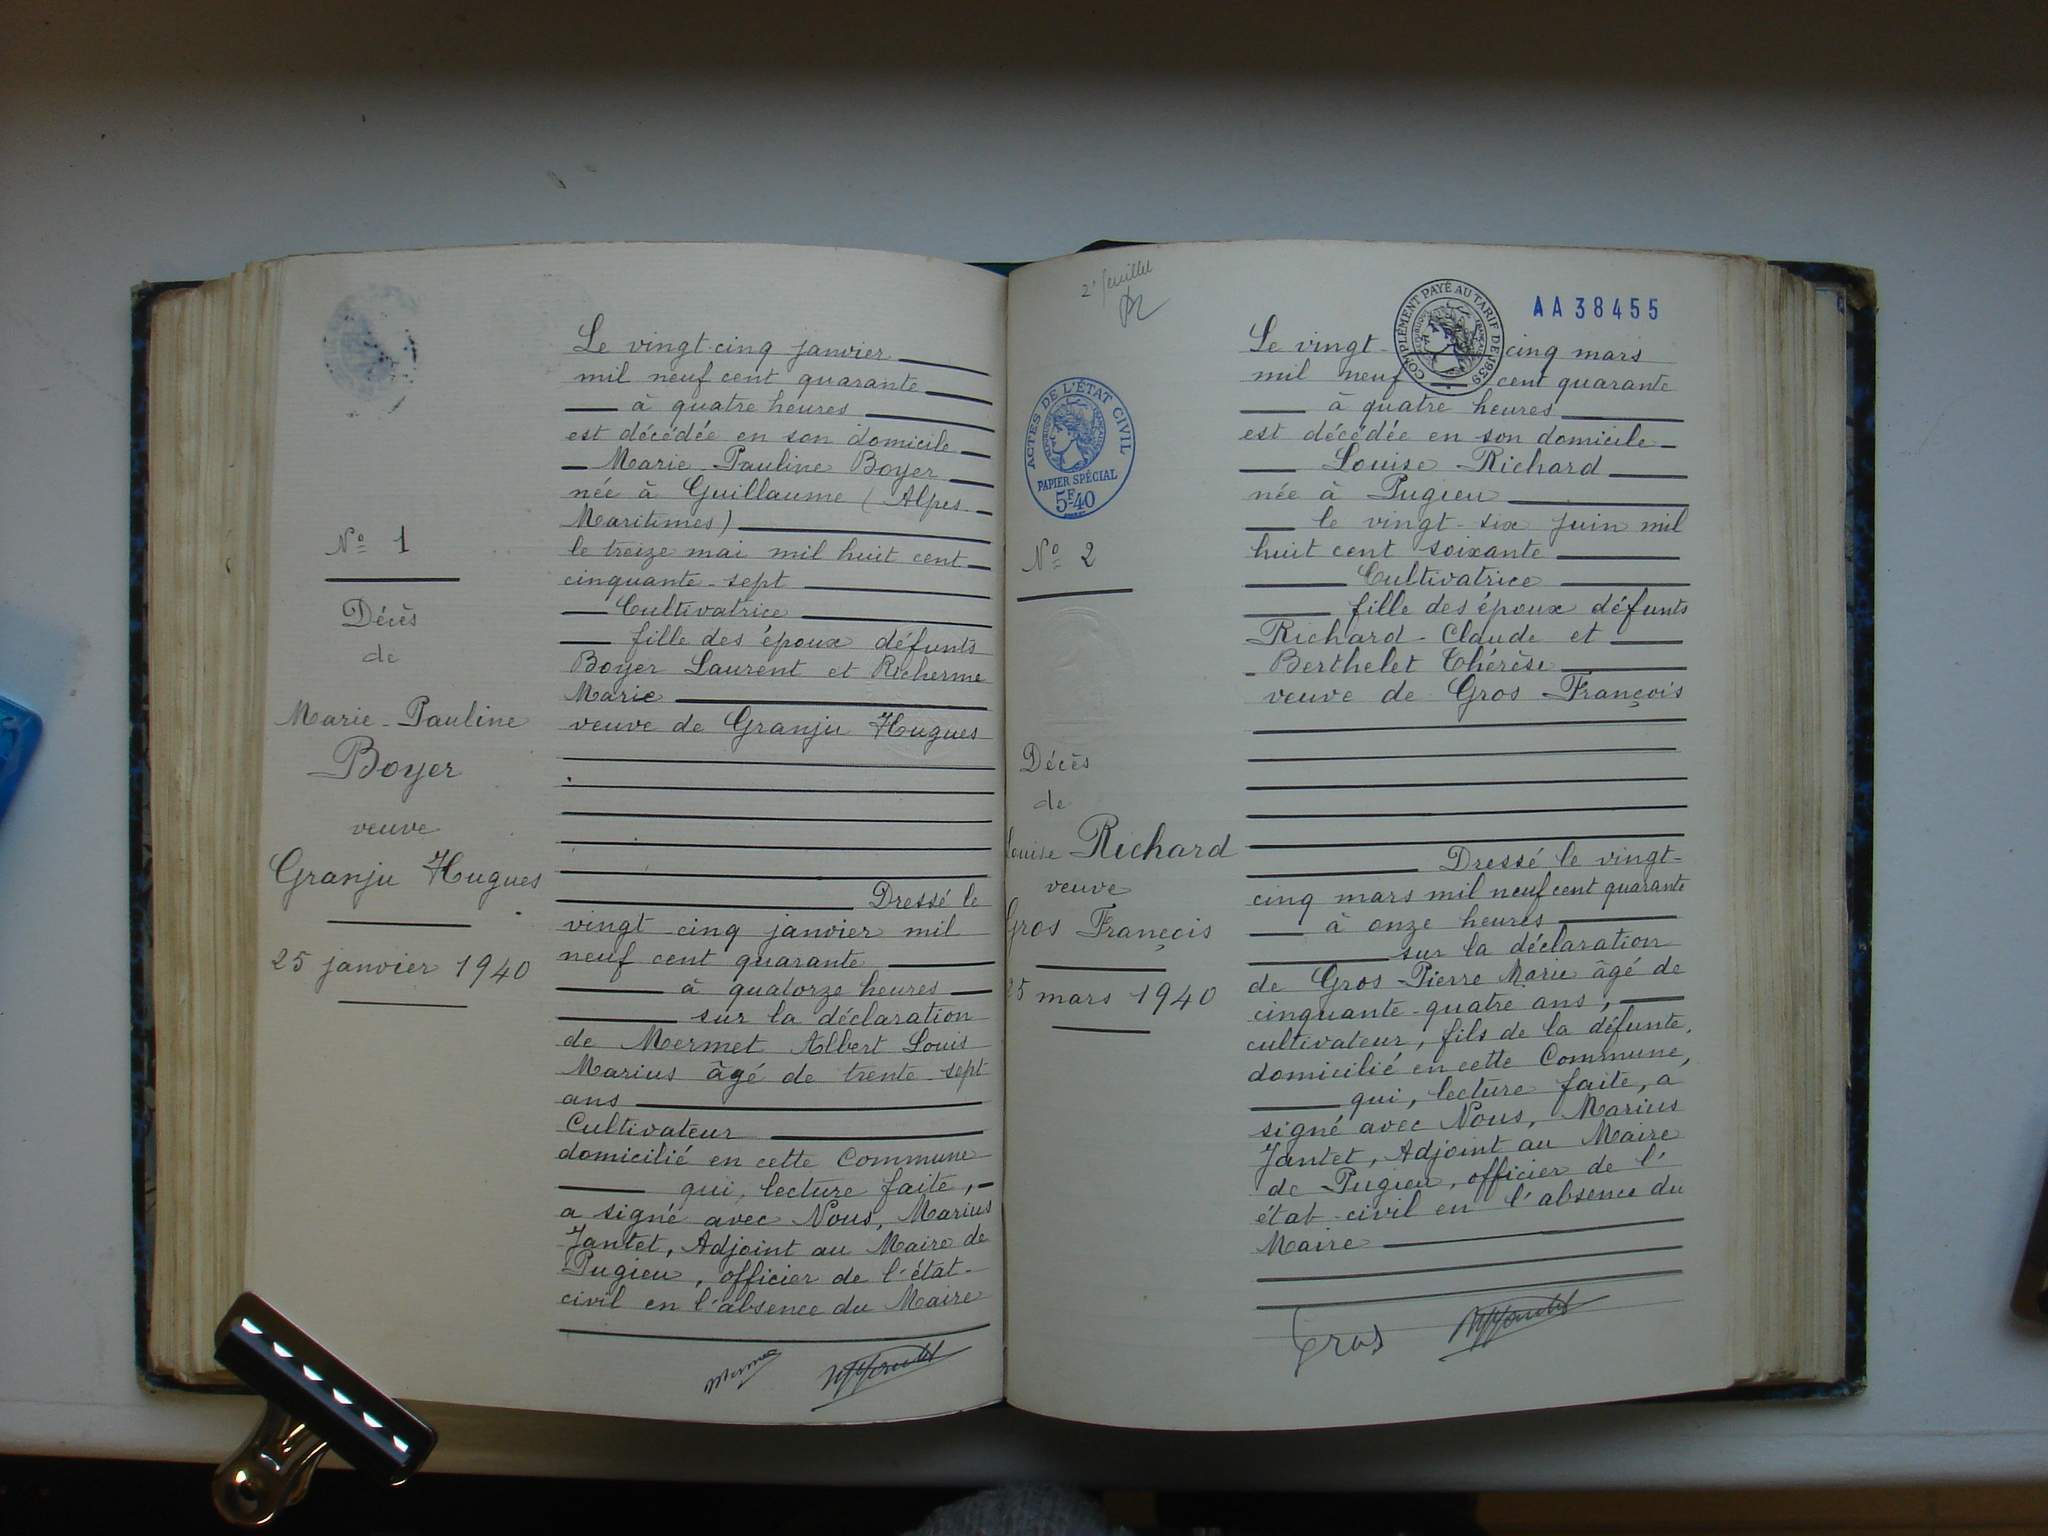 N° 1
Décès
de
Marie-Pauline
Boyer
veuve
Granju Hugues
25 janvier 1940
Le vingt-cinq janvier
mil neuf cent quarante
à quatre heures
est décédée en son domicile
Marie-Pauline Boyer
née à Guillaume (Alpes-
Maritimes)
le treize mai mil huit cent
cinquante-sept
Cultivatrice
fille des époux défunts
Boyer Laurent et Richerme
Marie
veuve de Granju Hugues
Dressé le
vingt-cinq janvier mil
neuf cent quarante
à quatorze heures
sur la déclaration
de Mermet Albert Louis
Marius âgé de trente-sept
ans
Cultivateur
domicilié en cette Commune
qui, lecture faite,
a signé avec Nous, Marius
Jantet, Adjoint au Maire de
Pugieu, officier de l'état-
civil en l'absence du Maire
2e feuillet
ACTES DE L'ÉTAT CIVIL
RÉPUBLIQUE FRANÇAISE
PAPIER SPÉCIAL
5F40
N° 2
Décès
de
Louise Richard
veuve
Gros François
25 mars 1940
COMPLÉMENT PAYÉ AU TARIF DE 1939
RÉPUBLIQUE FRANÇAISE
AA38455
Le vingt-cinq mars
mil neuf cent quarante
à quatre heures
est décédée en son domicile
Louise Richard
née à Pugieu
le vingt-six juin mil
huit cent soixante
Cultivatrice
fille des époux défunts
Richard-Claude et
Berthelet Thérèse
veuve de Gros François
Dressé le vingt-
cinq mars mil neuf cent quarante
à onze heures
sur la déclaration
de Gros-Pierre Marie âgé de
cinquante-quatre ans,
cultivateur, fils de la défunte,
domicilié en cette Commune,
qui, lecture faite, a
signé avec Nous, Marius
Jantet, Adjoint au Maire
de Pugieu, officier de l'
état-civil en l'absence du
Maire
Gros